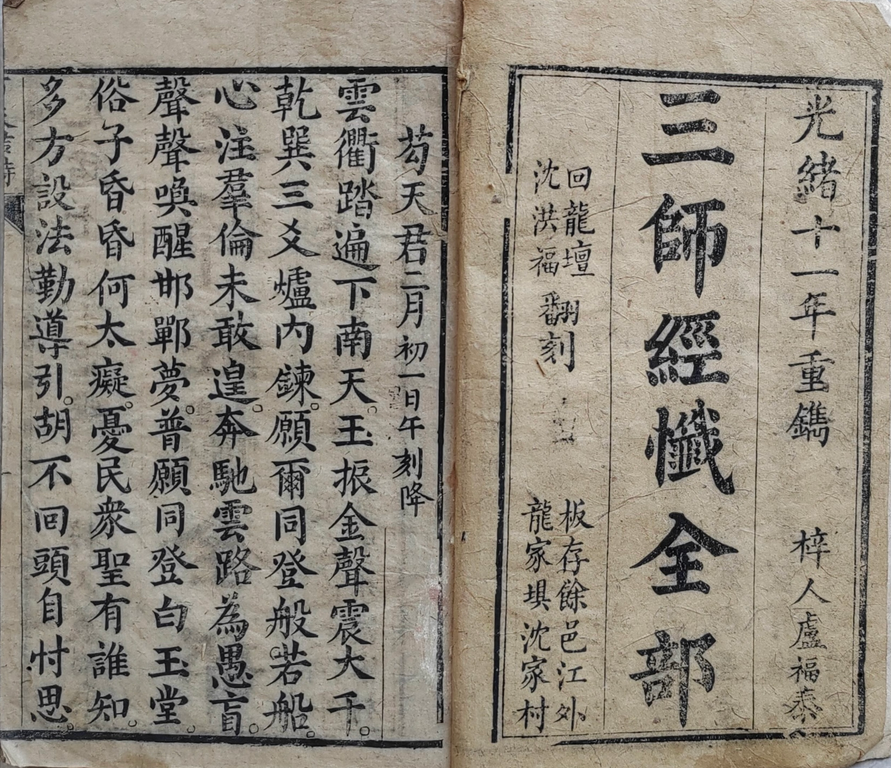 光緒十一年重鐫
梓人盧福泰
三師經懺全部
回龍壇
沈洪福 翻刻
板存餘邑江外
龍家埧沈家村
芶天君二月初一日午刻降
雲衢踏遍下南天。玉振金聲震大千。
乾巽三爻爐内鍊。願爾同登般若船。
心注羣倫未敢遑。奔馳雲路為愚盲。
聲聲喚醒邯鄲夢。普願同登白玉堂。
俗子昏昏何太癡。憂民衆聖有誰知。
多方設法勤導引。胡不回頭自忖思。